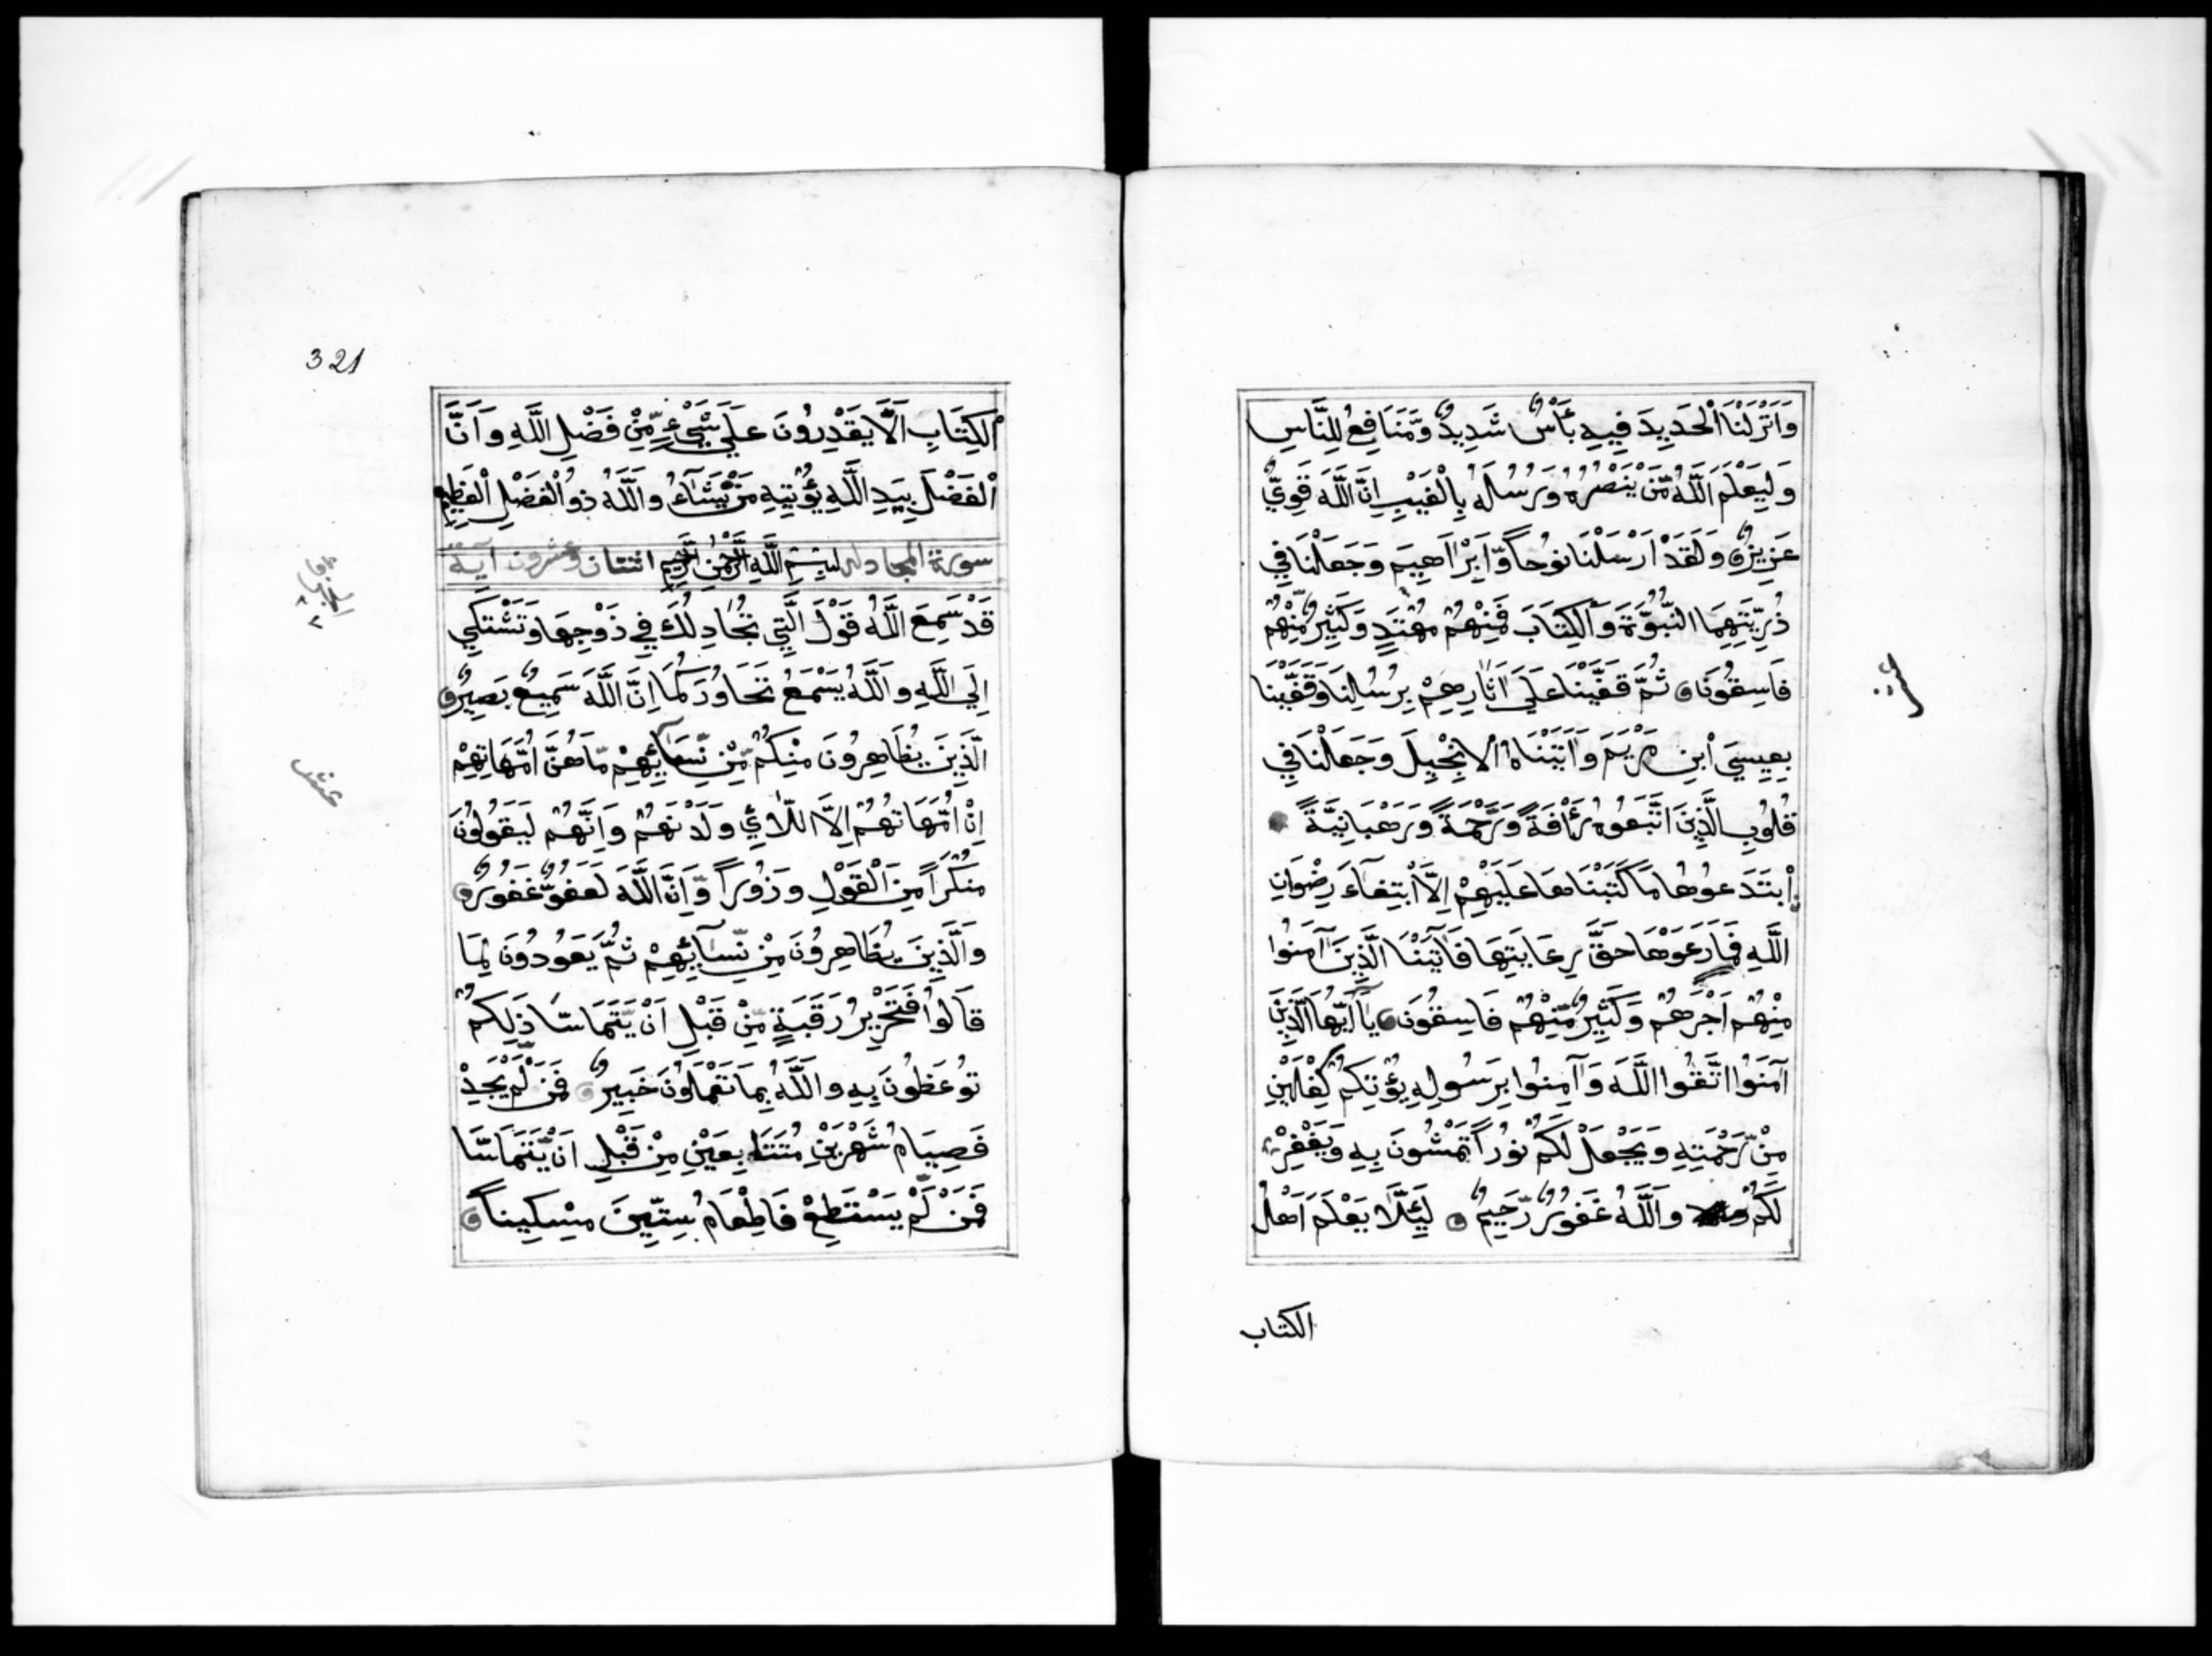 وَأَنْزَلْنَا الْحَدِيدَ فِيهِ بَأْسٌ شَدِيدٌ وَّمَنَافِعُ لِلنَّاسِ
وَلِيَعْلَمَ اللَّهُ مَنْ يَنْصُرُهُ وَرُسُلَهُ بِالْغَيْبِ إِنَّ اللَّهَ قَوِيٌّ
عَزِيزٌ وَلَقَدْ أَرْسَلْنَا نُوحًا وَّإِبْرَاهِيمَ وَجَعَلْنَا فِي
ذُرِّيَّتِهِمَا النُّبُوَّةَ وَالْكِتَابَ فَمِنْهُمْ مُهْتَدٍ وَكَثِيرٌ مِّنْهُمْ
فَاسِقُونَ ثُمَّ قَفَّيْنَا عَلَى آثَارِهِمْ بِرُسُلِنَا وَقَفَّيْنَا
بِعِيسَى ابْنِ مَرْيَمَ وَآتَيْنَاهُ الْإِنْجِيلَ وَجَعَلْنَا فِي
قُلُوبِ الَّذِينَ اتَّبَعُوهُ رَأْفَةً وَّرَحْمَةً وَرَهْبَانِيَّةً
ابْتَدَعُوهَا مَا كَتَبْنَاهَا عَلَيْهِمْ إِلَّا ابْتِغَاءَ رِضْوَانِ
اللَّهِ فَمَا رَعَوْهَا حَقَّ رِعَايَتِهَا فَآتَيْنَا الَّذِينَ آمَنُوا
مِنْهُمْ أَجْرَهُمْ وَكَثِيرٌ مِّنْهُمْ فَاسِقُونَ يَا أَيُّهَا الَّذِينَ
آمَنُوا اتَّقُوا اللَّهَ وَآمِنُوا بِرَسُولِهِ يُؤْتِكُمْ كِفْلَيْنِ
مِنْ رَّحْمَتِهِ وَيَجْعَلْ لَكُمْ نُورًا تَمْشُونَ بِهِ وَيَغْفِرْ
لَكُمْ وَاللَّهُ غَفُورٌ رَّحِيمٌ لِئَلَّا يَعْلَمَ أَهْلُ
الكتاب
321
الْكِتَابِ أَلَّا يَقْدِرُونَ عَلَى شَيْءٍ مِّنْ فَضْلِ اللَّهِ وَأَنَّ
الْفَضْلَ بِيَدِ اللَّهِ يُؤْتِيهِ مَنْ يَّشَاءُ وَاللَّهُ ذُو الْفَضْلِ الْعَظِيمِ
سورة المجادلة بِسْمِ اللَّهِ الرَّحْمَٰنِ الرَّحِيمِ اثنتان وعشرون آية
قَدْ سَمِعَ اللَّهُ قَوْلَ الَّتِي تُجَادِلُكَ فِي زَوْجِهَا وَتَشْتَكِي
إِلَى اللَّهِ وَاللَّهُ يَسْمَعُ تَحَاوُرَكُمَا إِنَّ اللَّهَ سَمِيعٌ بَصِيرٌ
الَّذِينَ يُظَاهِرُونَ مِنْكُمْ مِّنْ نِّسَائِهِمْ مَّا هُنَّ أُمَّهَاتِهِمْ
إِنْ أُمَّهَاتُهُمْ إِلَّا اللَّائِي وَلَدْنَهُمْ وَإِنَّهُمْ لَيَقُولُونَ
مُنْكَرًا مِّنَ الْقَوْلِ وَزُورًا وَّإِنَّ اللَّهَ لَعَفُوٌّ غَفُورٌ
وَالَّذِينَ يُظَاهِرُونَ مِنْ نِّسَائِهِمْ ثُمَّ يَعُودُونَ لِمَا
قَالُوا فَتَحْرِيرُ رَقَبَةٍ مِّنْ قَبْلِ أَنْ يَّتَمَاسَّا ذَلِكُمْ
تُوعَظُونَ بِهِ وَاللَّهُ بِمَا تَعْمَلُونَ خَبِيرٌ فَمَنْ لَّمْ يَجِدْ
فَصِيَامُ شَهْرَيْنِ مُتَتَابِعَيْنِ مِنْ قَبْلِ أَنْ يَّتَمَاسَّا
فَمَنْ لَّمْ يَسْتَطِعْ فَإِطْعَامُ سِتِّينَ مِسْكِينًا